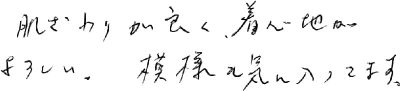 肌ざわりが良く、着心地が
よろしい。 模様も気に入ってます。